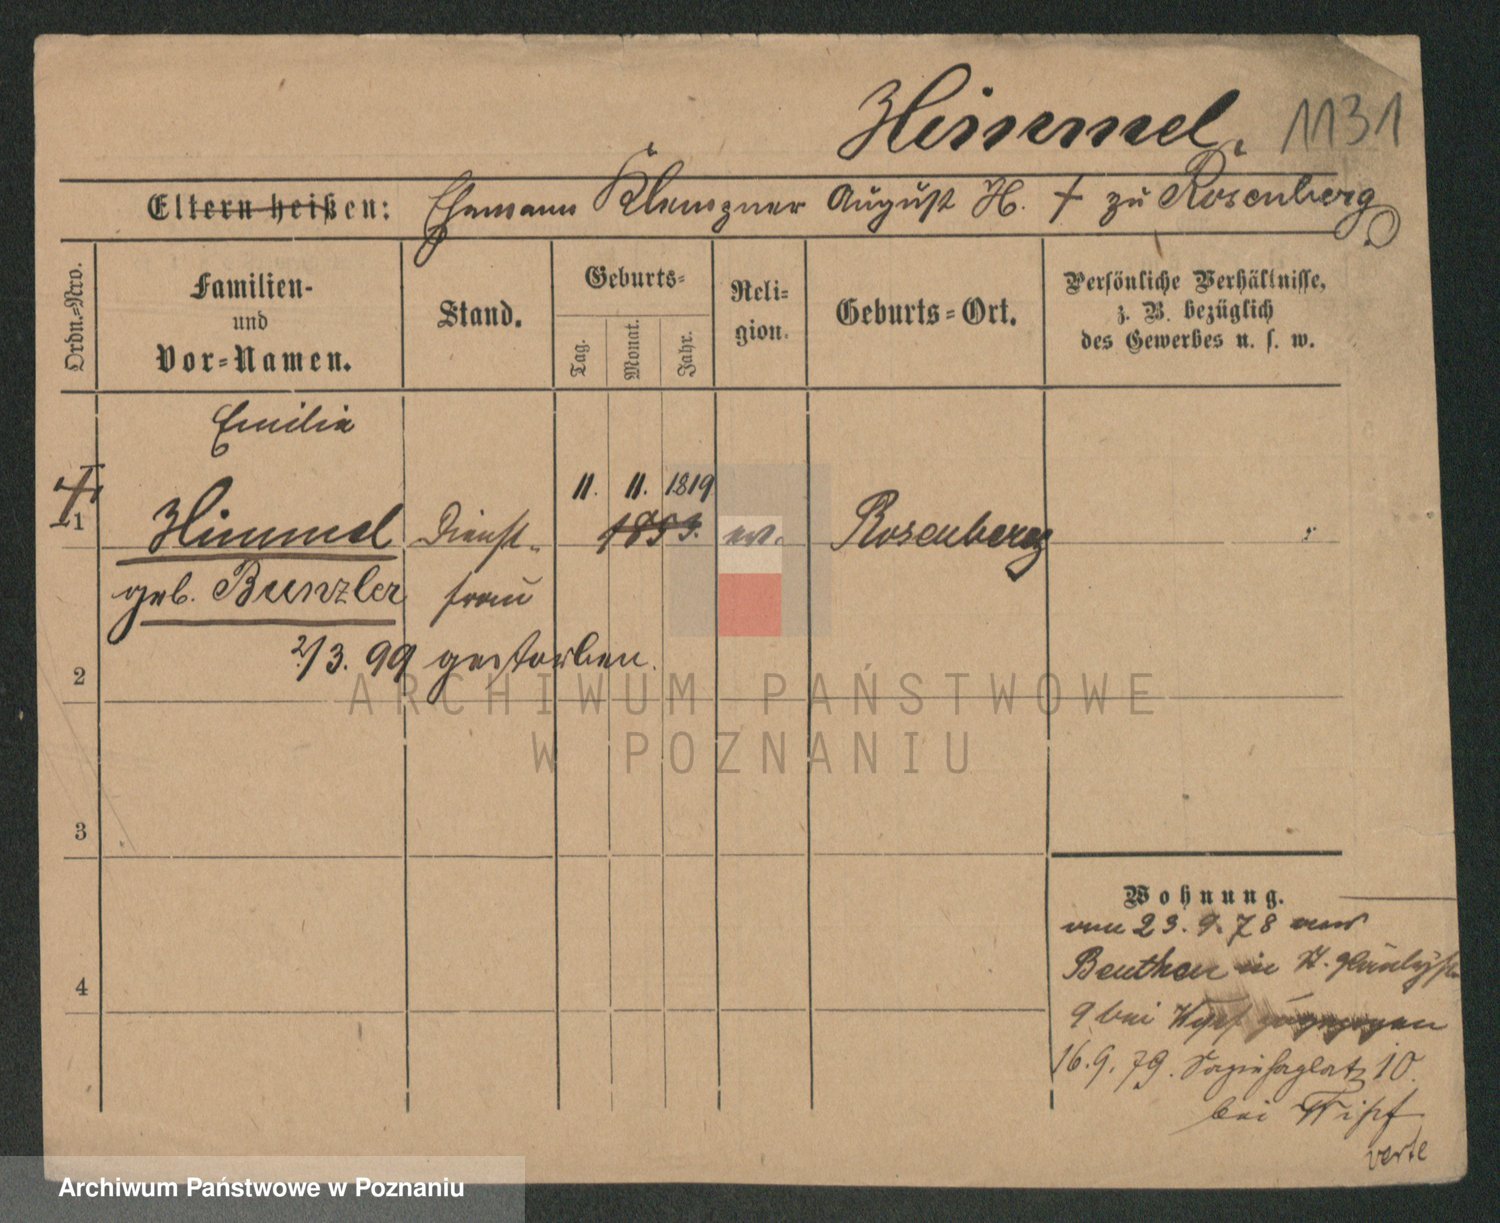 Himmel. 1131
Eltern heißen: Ehemann Klempner August H. † zu Rosenberg
Ordn.-Nro.
Familien-
und
Vor-Namen.
Stand.
Geburts-
Tag.
Monat.
Jahr.
Reli-
gion.
Geburts-Ort.
Persönliche Verhältnisse,
z. B. bezüglich
des Gewerbes u. s. w.
Emilie
11. 11. 1819
1 Himmel Dienst- 1853. ev. Rosenberg
geb. Bunzler frau
2/3. 99 gestorben.
2
3
4
Wohnung.
vom 23. 9. 78 aus
Beuthen in H.
9 bei zugezogen
16. 9. 79. Sapiehaplatz 10.
bei
verte
ARCHIWUM PAŃSTWOWE
W POZNANIU
Archiwum Państwowe w Poznaniu